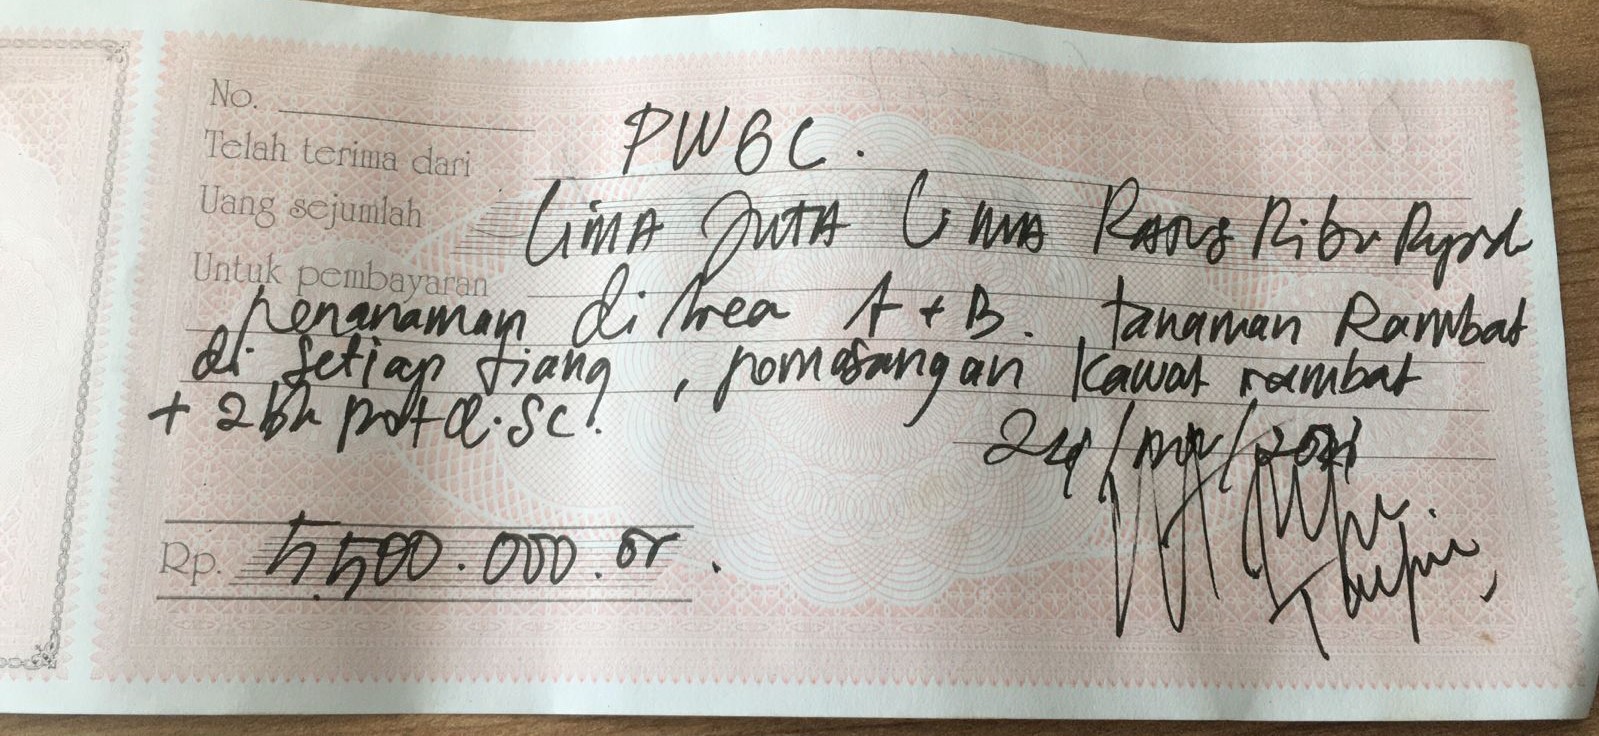 No.
Telah terima dari PWGC.
Uang sejumlah Lima Juta Lima Ratus Ribu Rupiah
Untuk pembayaran
penanaman di Area A + B. tanaman Rambat
di setiap tiang, pemasangan kawat rambat
+ 2 bh pot
24/ /2021
Rp. 5.500.000.